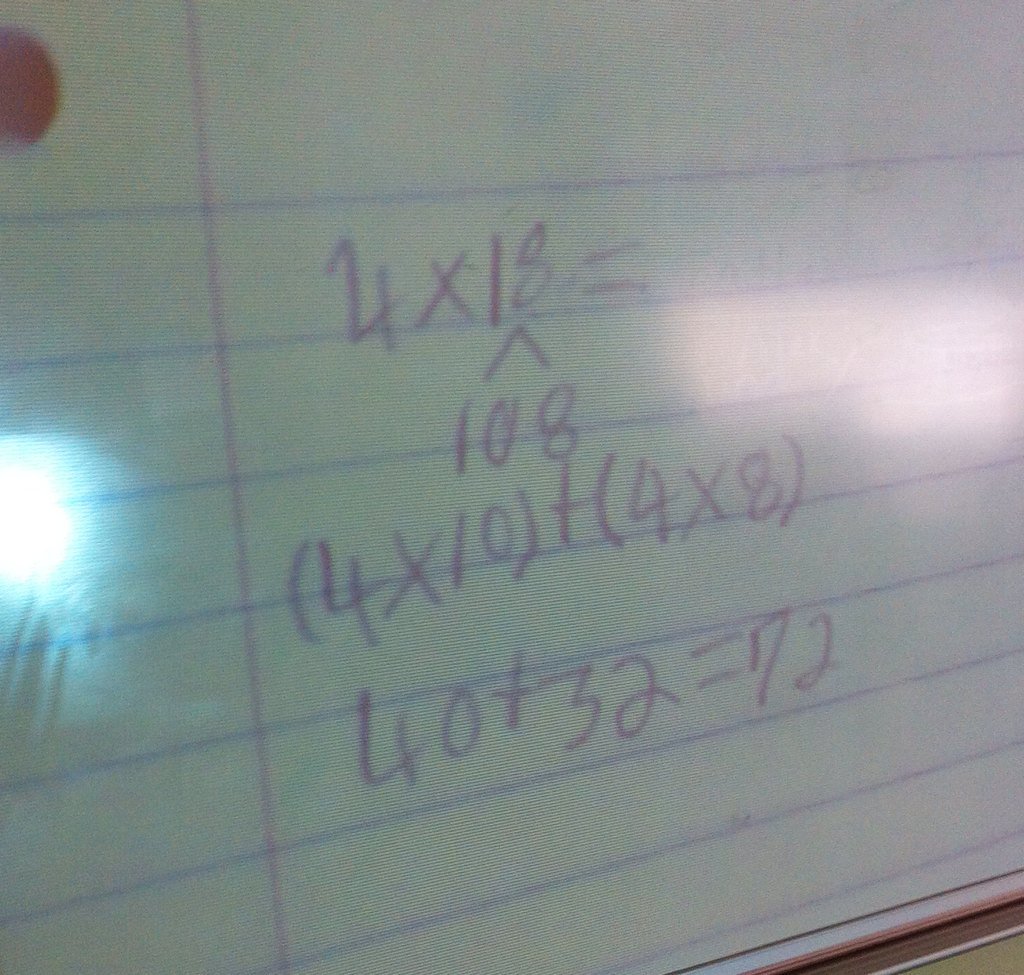 4 × 18 =
^
10 8
(4 × 10) + (4 × 8)
40 + 32 = 72